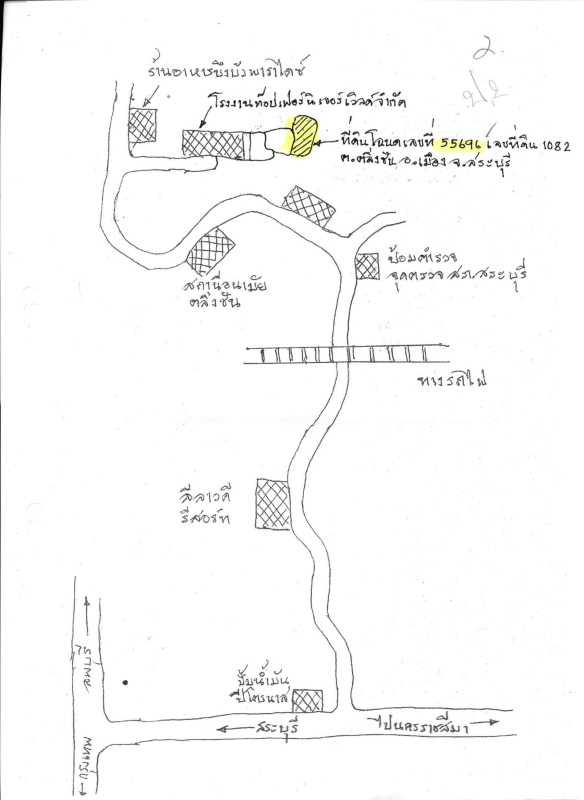 2.
ร้านอาหารบึงบังพาราไดซ์
โรงงานท๊อปเฟอร์นิเจอร์เวิลด์จำกัด
ที่ดินโฉนดเลขที่ 55696 เลขที่ดิน 1082
ต.ตลิ่งชัน อ.เมือง จ.สระบุรี
ป้อมตำรวจ
จุดตรวจ สภ.สระบุรี
สถานีอนามัย
ตลิ่งชัน
ทางรถไฟ
ลีลาวดี
รีสอร์ท
ลพบุรี
ปั้มน้ำมัน
ปิโตรนาส
สระบุรี
ไปนครราชสีมา
กรุงเทพ